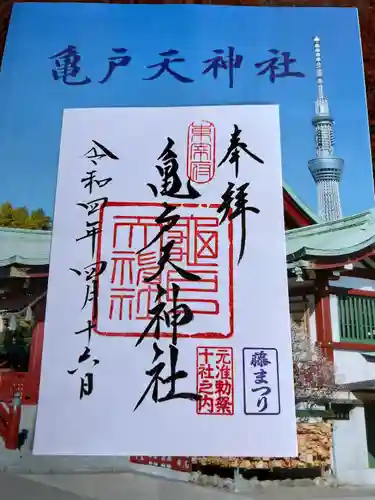 亀戸天神社
奉拝
東宰府
亀戸天神社
亀戸天神社
令和四年四月十六日
元准勅祭
十社之内
藤まつり